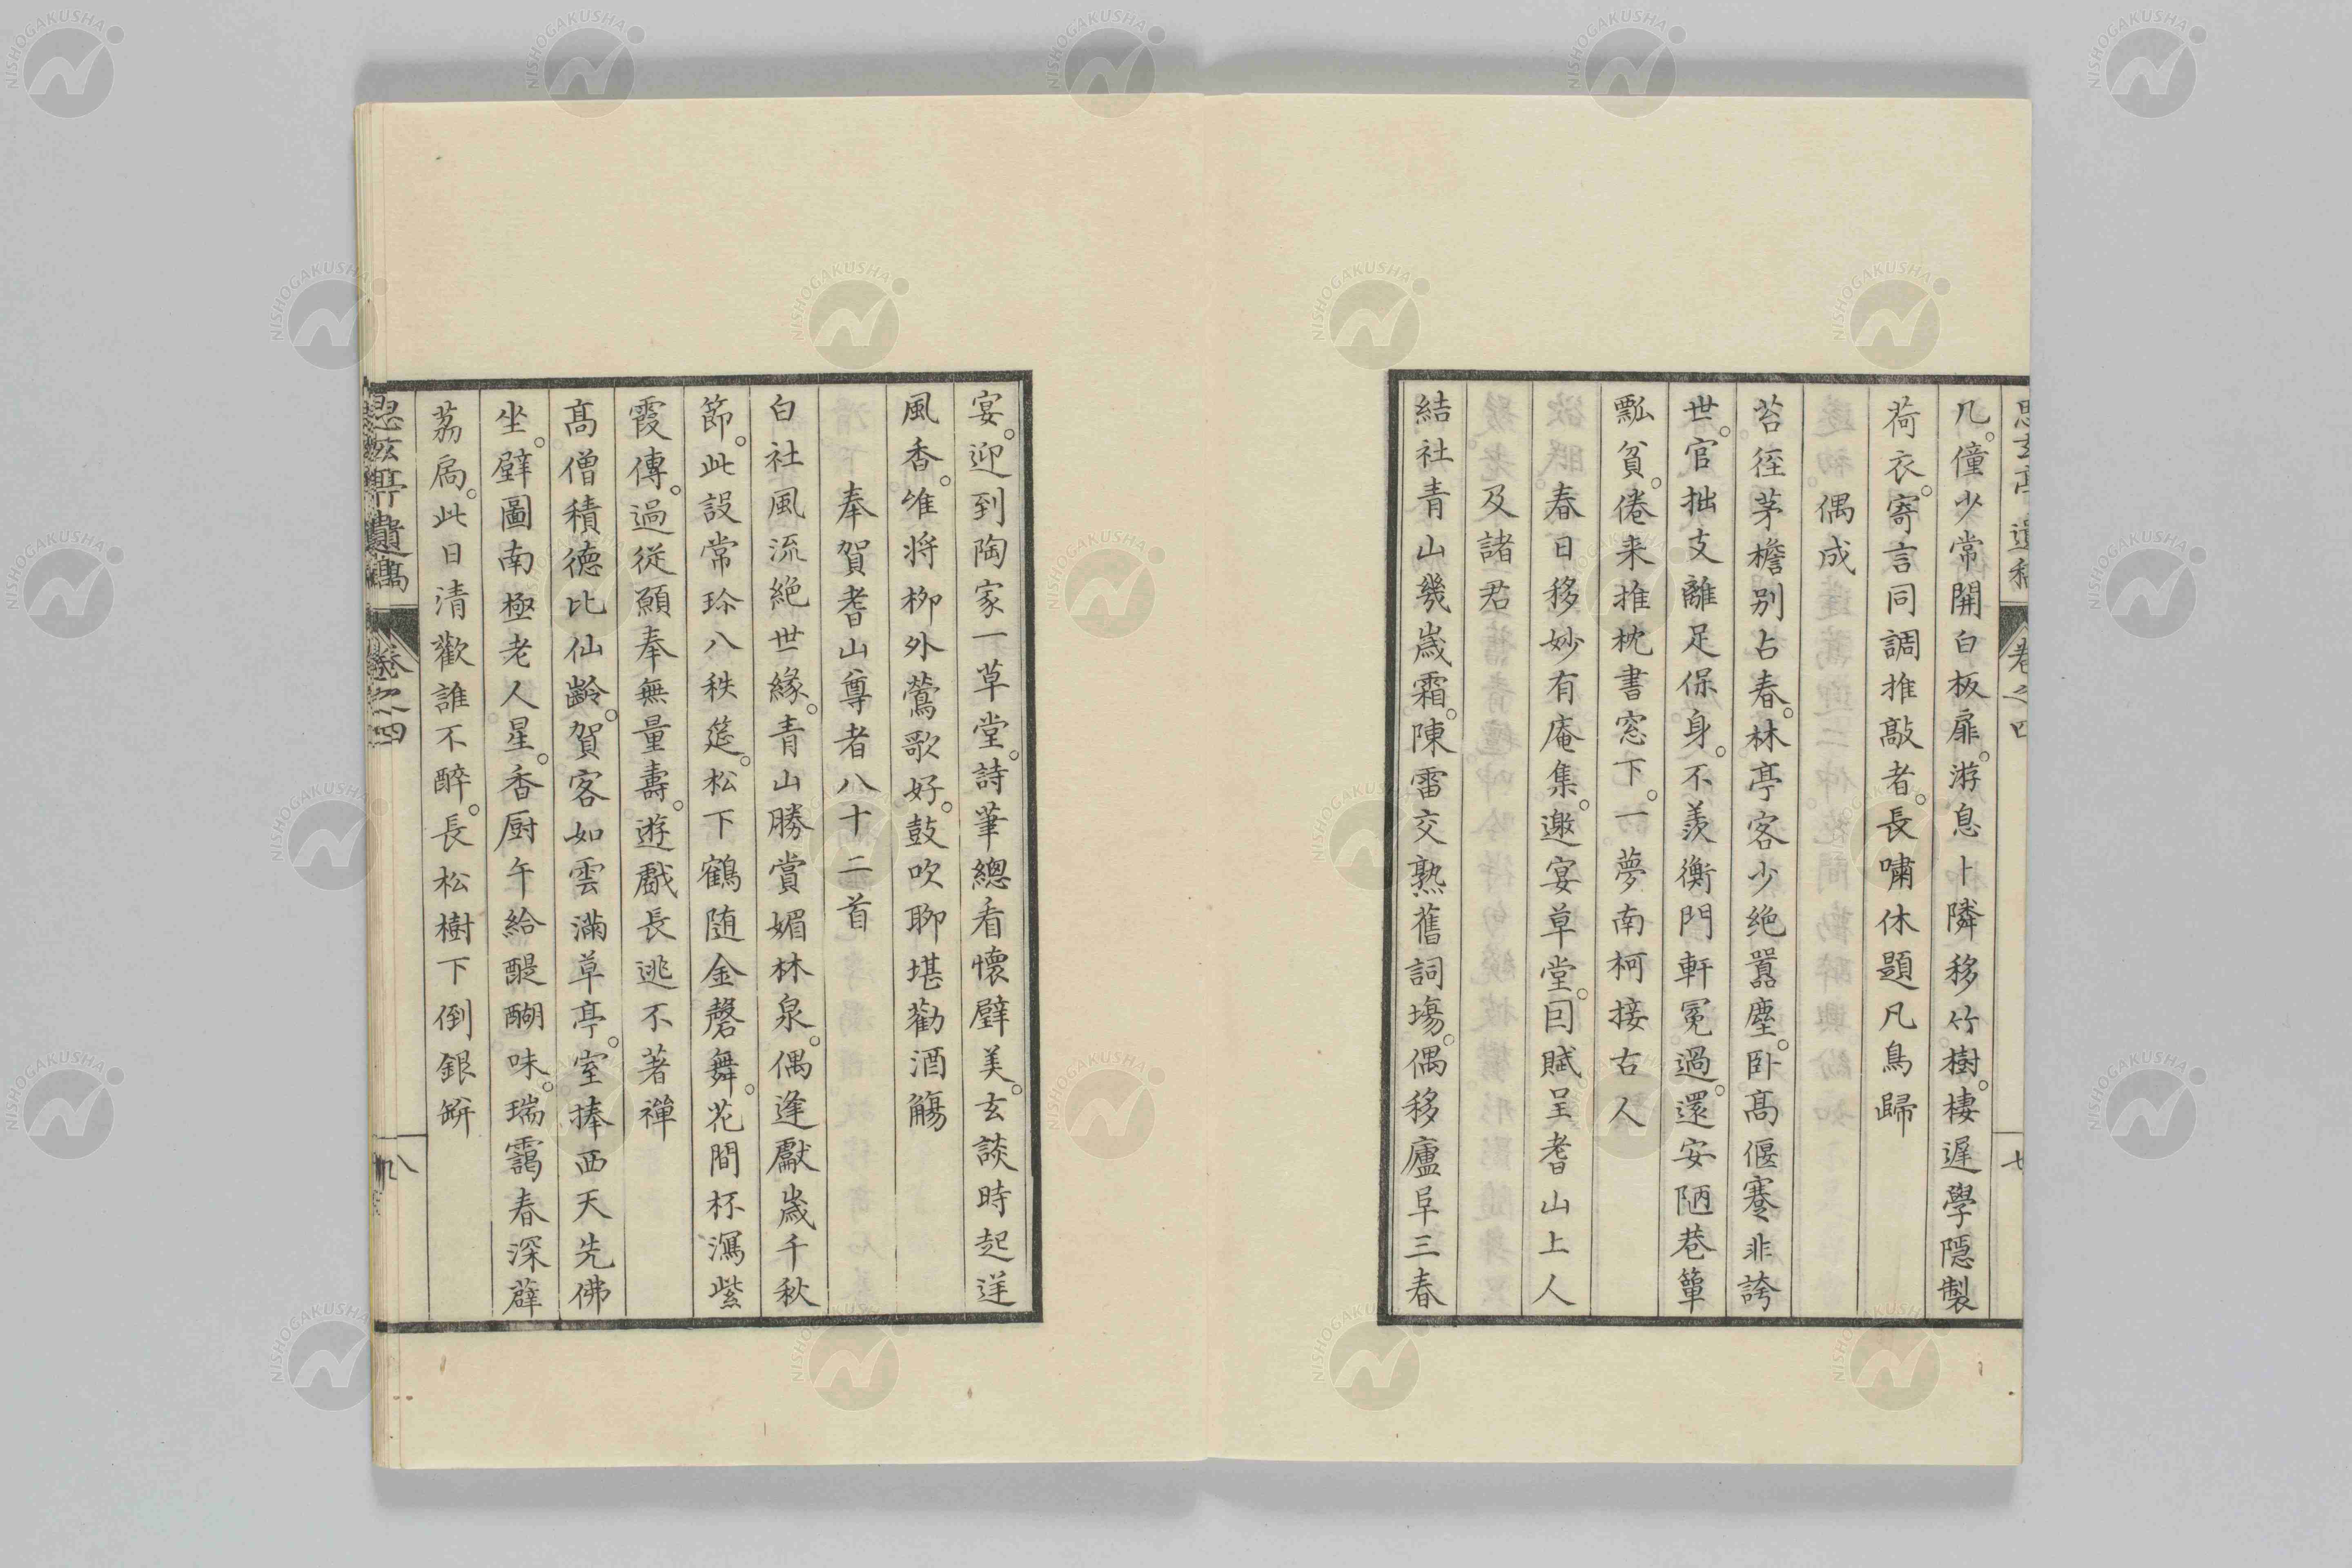 思玄亭遺稿 卷之四 七
几。僮少常開白板扉。游息卜隣移竹樹。棲遲學隱製
荷衣。寄言同調推敲者。長嘯休題凡鳥歸
偶成
苔徑茅檐別占春。林亭客少絶囂塵。臥髙偃蹇非誇
世。官拙支離足保身。不羨衡門軒冕過。還安陋巷簞
瓢貧。倦来推枕書窓下。一夢南柯接古人
春日移妙有庵集。邀宴草堂。因賦呈耆山上人
及諸君
結社青山幾歳霜。陳雷交熟舊詞塲。偶移廬阜三春
宴。迎到陶家一草堂。詩筆總看懷璧美。玄談時起逆
風香。唯将柳外鶯歌好。鼓吹聊堪勸酒觴
奉賀耆山尊者八十二首
白社風流絶世縁。青山勝賞媚林泉。偶逢獻歳千秋
節。此設常珎八秩筵。松下鶴随金磬舞。花間杯瀉紫
霞傳。過従願奉無量壽。遊戲長逃不著禪
髙僧積德比仙齡。賀客如雲滿草亭。室捧西天先佛
坐。壁圖南極老人星。香厨午給醍醐味。瑞靄春深薜
荔扃。此日清歡誰不醉。長松樹下倒銀缾
思玄亭遺稿 卷之四 八